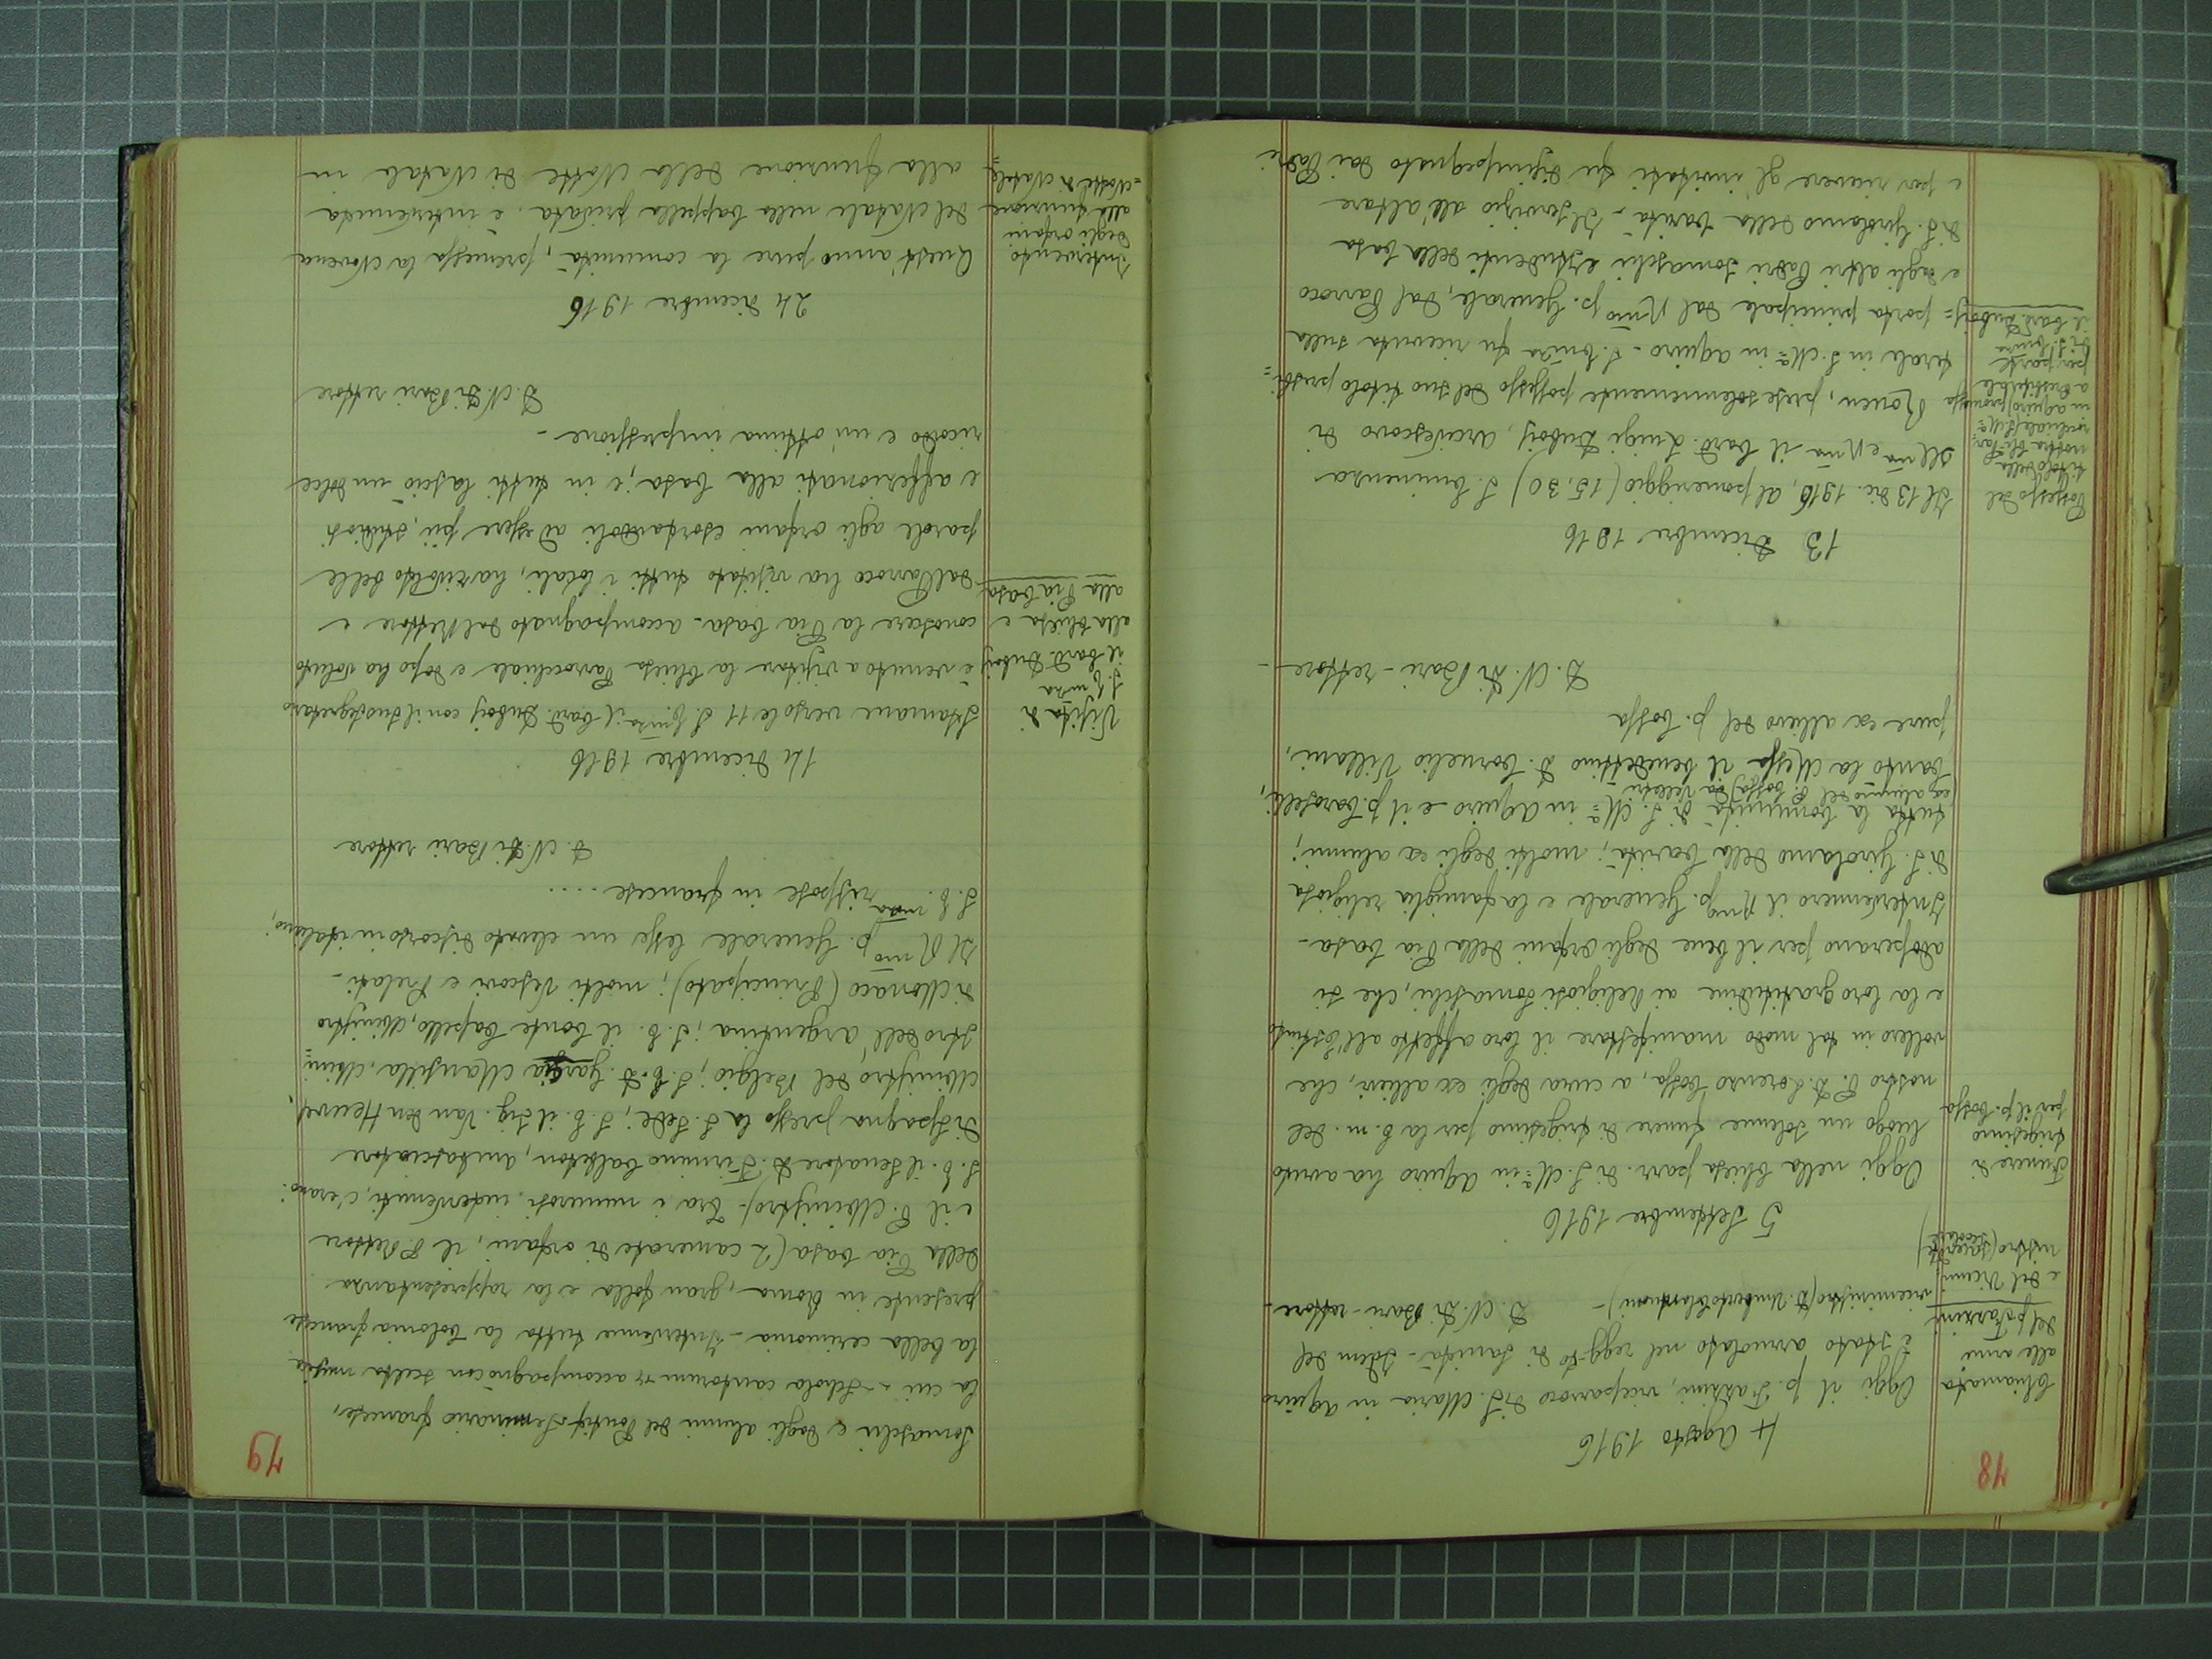 78
4 Agosto 1916
Chiamata
alle armi
del p. Fazzini
e del Vicemi-
nistro (sacerdote
secolare)
Oggi il p. Fazzini, viceparroco di S. Maria in Aquiro
è stato arruolato nel regg-to di Sanità - Idem del
viceministro (D. Umberto
D. N. Di Bari - rettore -
5 Settembre 1916
Funere di
trigesimo
per il p. Cossa
Oggi nella Chiesa parr. di S. Mª in Aquiro ha avuto
luogo un solenne funere di trigesimo per la b. m. del
nostro P. D. Lorenzo Cossa, a cura degli ex allievi, che
vollero in tal modo manifestare il loro affetto all'Estinto
e la loro gratitudine ai Religiosi Somaschi, che si
adoperano per il bene degli Orfani della Pia Casa -
Intervennero il Rmo p. Generale e la famiglia religiosa
di S. Girolamo della Carità; molti degli ex alunni;
tutta la Comunità di S. Mª in Aquiro e il p. Caroselli,
ex alunno del P. Cossa) da Velletri
Cantò la Messa il benedettino D. Cornelio Villani,
pure ex allievo del p. Cossa
D. N. Di Bari - rettore -
13 Dicembre 1916
Possesso del
titolo della
nostra Chie. Par-
rochiale S. Mª
in Aquiro promossa
a Presbiterale
per parte
di S. Emza
il Card. Dubois
Il 13 dic. 1916, al pomeriggio (15,30) S. Eminenza
Illma e Rma il Card. Luigi Dubois, arcivescovo di
Rouen, prese solennemente possesso del suo titolo presbi-
terale in S. Mª in Aquiro - S. Emza fu ricevuta sulla
porta principale dal Rmo p. Generale, dal Parroco
e dagli altri Padri Somaschi e studenti della Casa
di S. Girolamo della Carità - Il servizio all'altare
e per ricevere gl'invitati fu disimpegnato dai Padri
79
Somaschi e dagli alunni del Pontif. Seminario francese,
la cui "Schola cantorum" accompagnò con scelta musica
la bella cerimonia - Intervenne tutta la Colonia francese
presente in Roma, gran folla e la rappresentanza
della Pia Casa (2 camerate di orfani, il P. Rettore
e il P. Ministro) - Tra i numerosi intervenuti, c'erano:
S. E. il Senatore D. Firmino Calbeton, ambasciatore
di Spagna presso la S. Sede; S. E. il Sig. Van den Heuvel,
Ministro del Belgio; S. E. D. Garzia Mansilla, Mini-
stro dell'Argentina; S. E. il Conte Capello, Ministro
di Monaco (Principato); molti Vescovi e Prelati -
Il Rmo p. Generale lesse un elevato discorso in italiano;
S. E. nza rispose in francese ....
D. N. Di Bari rettore
14 Dicembre 1916
Visita di
S. Emnza
il Card. Dubois
alla Chiesa e
alla Pia Casa
Stamane verso le 11 S. Emza il Card. Dubois con il suo segretario
è venuto a visitare la Chiesa Parrocchiale e dopo ha voluto
conoscere la Pia Casa - accompagnato dal Rettore e
dal Parroco ha visitato tutti i locali, ha rivolto delle
parole agli orfani esortandoli ad essere più studiosi
e affezionati alla Casa; e in tutti lasciò un dolce
ricordo e un'ottima impressione -
D. N. Di Bari rettore
24 dicembre 1916
Intervento
degli orfani
alla funzione
"Notte di Natale"
Quest'anno pure la comunità, premessa la Novena
del Natale nella Cappella privata, è intervenuta
alla funzione della Notte di Natale in